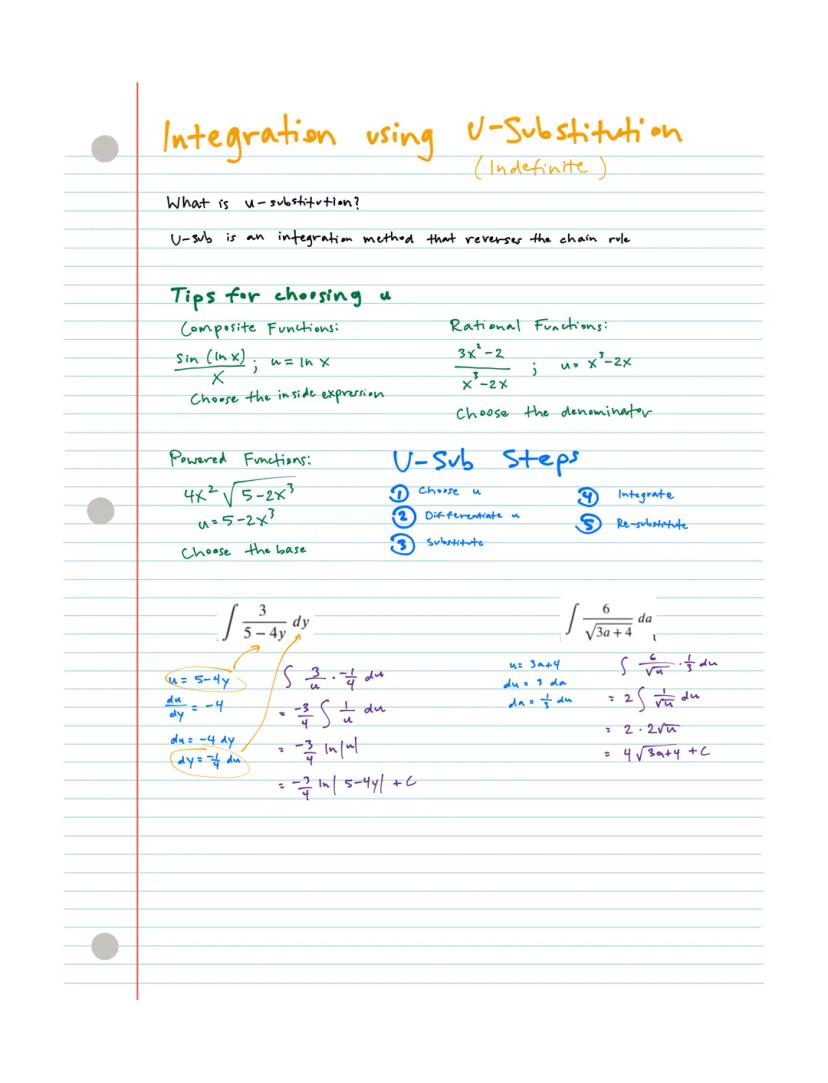 Integration using U-Substitution
(Indefinite)
What is u-substitution?
U-sub is an integration method that reverses the chain rule
Tips for choosing u
Composite Functions:
sin (ln x) / x ; u = ln x
Choose the inside expression
Rational Functions:
3x² - 2 / x³ - 2x ; u = x³ - 2x
Choose the denominator
Powered Functions:
4x² √(5 - 2x³)
u = 5 - 2x³
Choose the base
U-Sub Steps
① Choose u
② Differentiate u
③ Substitute
④ Integrate
⑤ Re-substitute
∫ 3 / (5 - 4y) dy
u = 5 - 4y
du/dy = -4
du = -4 dy
dy = -1/4 du
∫ 3/u · -1/4 du
= -3/4 ∫ 1/u du
= -3/4 ln|u|
= -3/4 ln|5 - 4y| + C
∫ 6 / √(3a + 4) da
u = 3a + 4
du = 3 da
da = 1/3 du
∫ 6/√u · 1/3 du
= 2 ∫ 1/√u du
= 2 · 2√u
= 4 √(3a + 4) + C